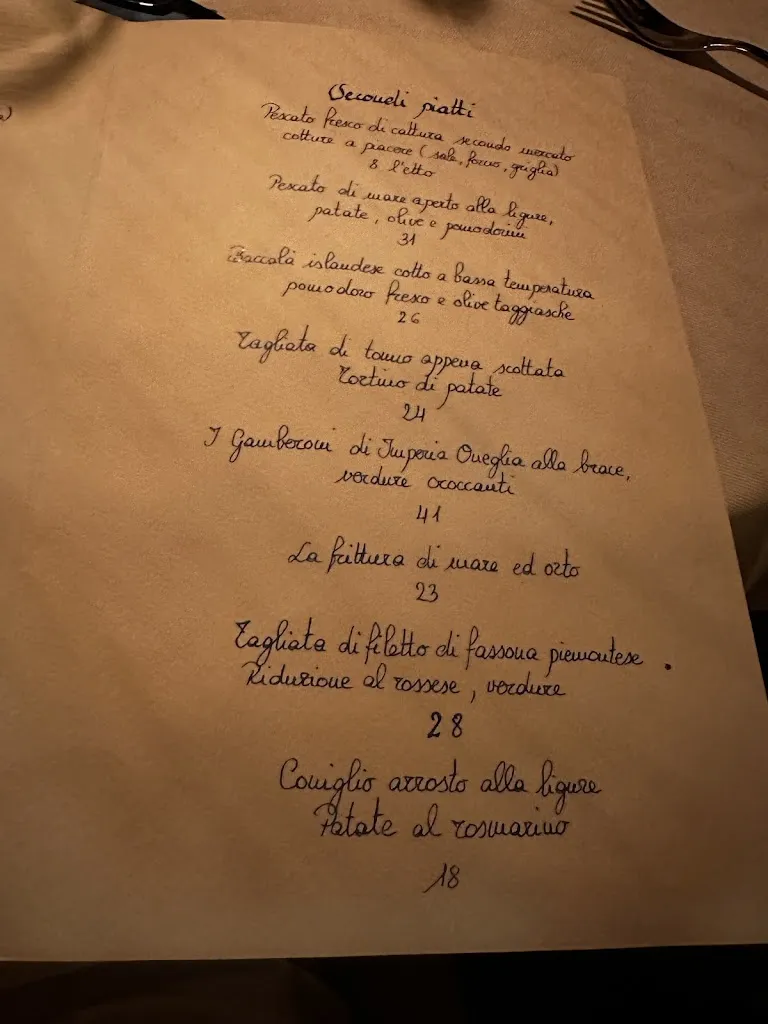 Secondi piatti
Pescato fresco di cattura secondo mercato
cotture a piacere (sale, forno, griglia)
8 l'etto
Pescato di mare aperto alla ligure,
patate, olive e pomodorini
31
Baccalà islandese cotto a bassa temperatura
pomodoro fresco e olive taggiasche
26
Tagliata di tonno appena scottata
Tortino di patate
24
I Gamberoni di Imperia Oneglia alla brace,
verdure croccanti
41
La frittura di mare ed orto
23
Tagliata di filetto di fassona piemontese .
Riduzione al rossese, verdure
28
Coniglio arrosto alla ligure
Patate al rosmarino
18